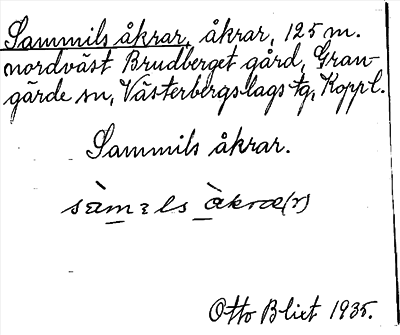 Sammils åkrar, åkrar, 125 m.
nordväst Brudberget gård, Gran-
gärde sn, Västerbergslags tg, Koppl.
Sammils åkrar.
sàmɛls àkrar(r)
Otto Blixt 1935.